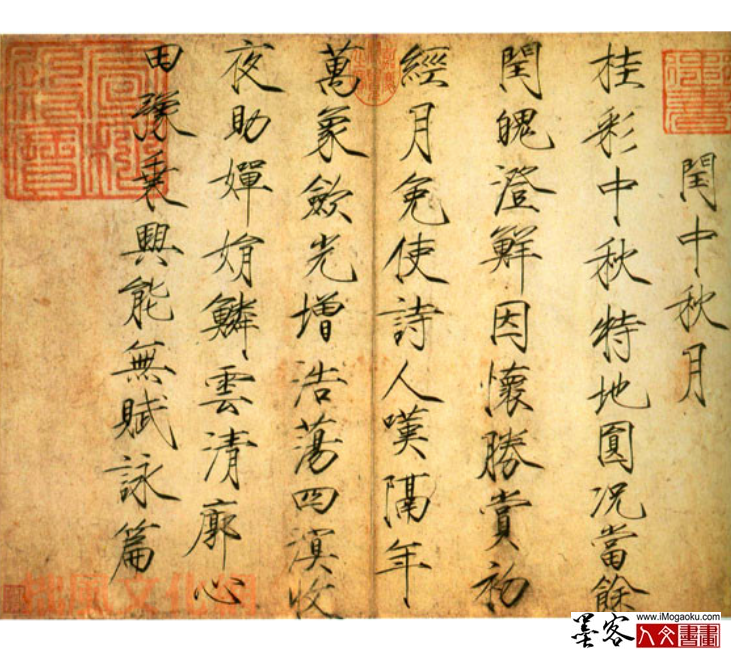 閏中秋月
桂彩中秋特地圓况當餘
閏魄澄鮮因懷勝賞初
經月免使詩人嘆隔年
萬象歛光增浩蕩四溟收
夜助嬋娟鱗雲清廓心
田豫乘興能無賦詠篇
拙風文化網
墨客
www.iMogaoku.com
人文書畫